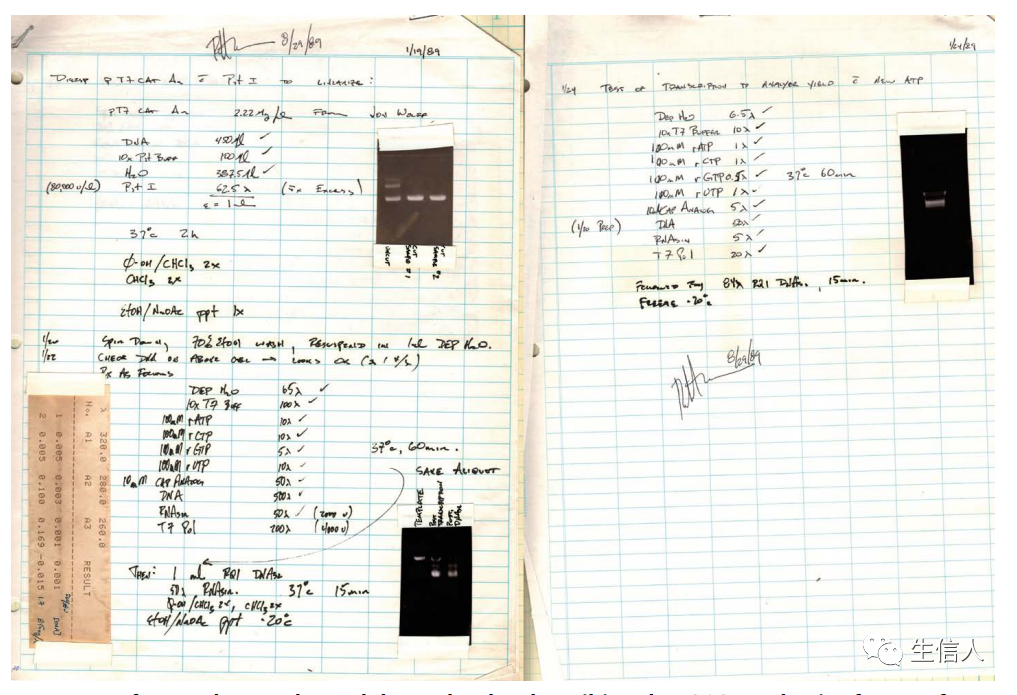 8/29/89
1/19/89
Digest pT7 CAT An c̄ Pst I to linearize:
pT7 CAT An 2.22 µg/µl From Jon Wolff
DNA 450 µl ✓
10x Pst Buff 100 µl ✓
H₂O 387.5 µl ✓
(80,000 u/ml) Pst I 62.5 λ (5x Excess)
Σ = 1 ml
UNCUT
CUT SAMPLE #1
CUT SAMPLE #2
37°c 2h
Φ-OH/CHCl₃ 2x
CHCl₃ 2x
EtOH/NaOAc ppt 1x
1/20 Spin Down, 70% EtOH wash, Resuspend in 1 ml DEP H₂O.
1/22 Check DNA on above gel → Looks OK
Rx As Follows
DEP H₂O 65λ ✓
10x T7 Buff 100λ ✓
100mM rATP 10λ ✓
100mM rCTP 10λ ✓
100mM rGTP 5λ ✓
100mM rUTP 10λ
10mM CAP Analog 50λ ✓
DNA 500λ ✓
RNAsin 50λ ✓ (2000 u)
T7 Pol 200λ (4000 u)
37°c, 60min.
SAVE ALIQUOT
TEMPLATE
POST TRANSCRIPTION
POST DNAse
Then: 1 ml RQ1 DNAse
50λ RNAsin. 37°c 15min
Φ-OH/CHCl₃ 2x, CHCl₃ 2x
EtOH/NaOAc ppt -20°c
λ 320.0 280.0 260.0
No. A1 A2 A3 RESULT
1 0.005 0.003 0.001 0.001
2 0.005 0.100 0.169 -0.015
1/24 Test of Transcription to Analyze Yield c̄ New ATP
DEP H₂O 6.5λ ✓
10x T7 Buffer 10λ ✓
100mM rATP 1λ ✓
100mM rCTP 1λ ✓
100mM rGTP 0.5λ ✓ 37°c 60min
100mM rUTP 1λ ✓
10mM CAP Analog 5λ ✓
(1/20 Prep) DNA 50λ ✓
RNAsin 5λ ✓
T7 Pol 20λ ✓
Followed By 84λ RQ1 DNAse, 15min.
Freeze -20°c
8/29/89
生信人